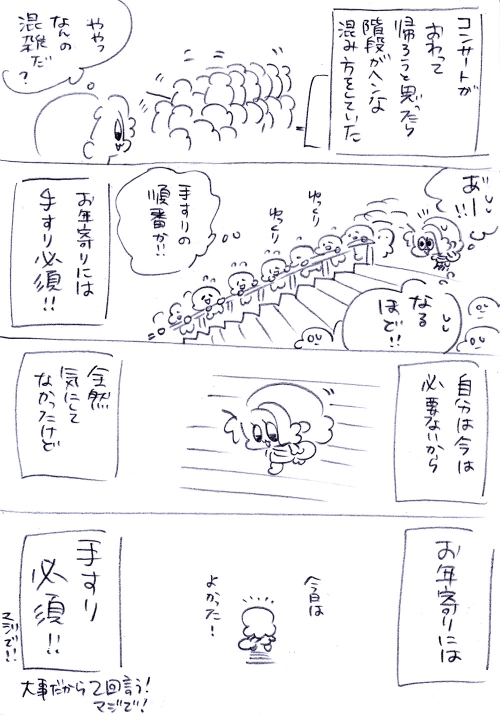 コンサートが
おわって
帰ろうと思ったら
階段がヘンな
混み方をしていた
ややっ
なんの
混雑だ?
あ゛ーー
なる
ほど!!
ゆっくり
ゆっくり
手すりの
順番か!!
お年寄りには
手すり必須!!
自分は今は
必要ないから
全然
気にして
なかったけど
お年寄りには
今日は
よかった!
手すり
必須!!
マジで!!
大事だから2回言う!
マジで!